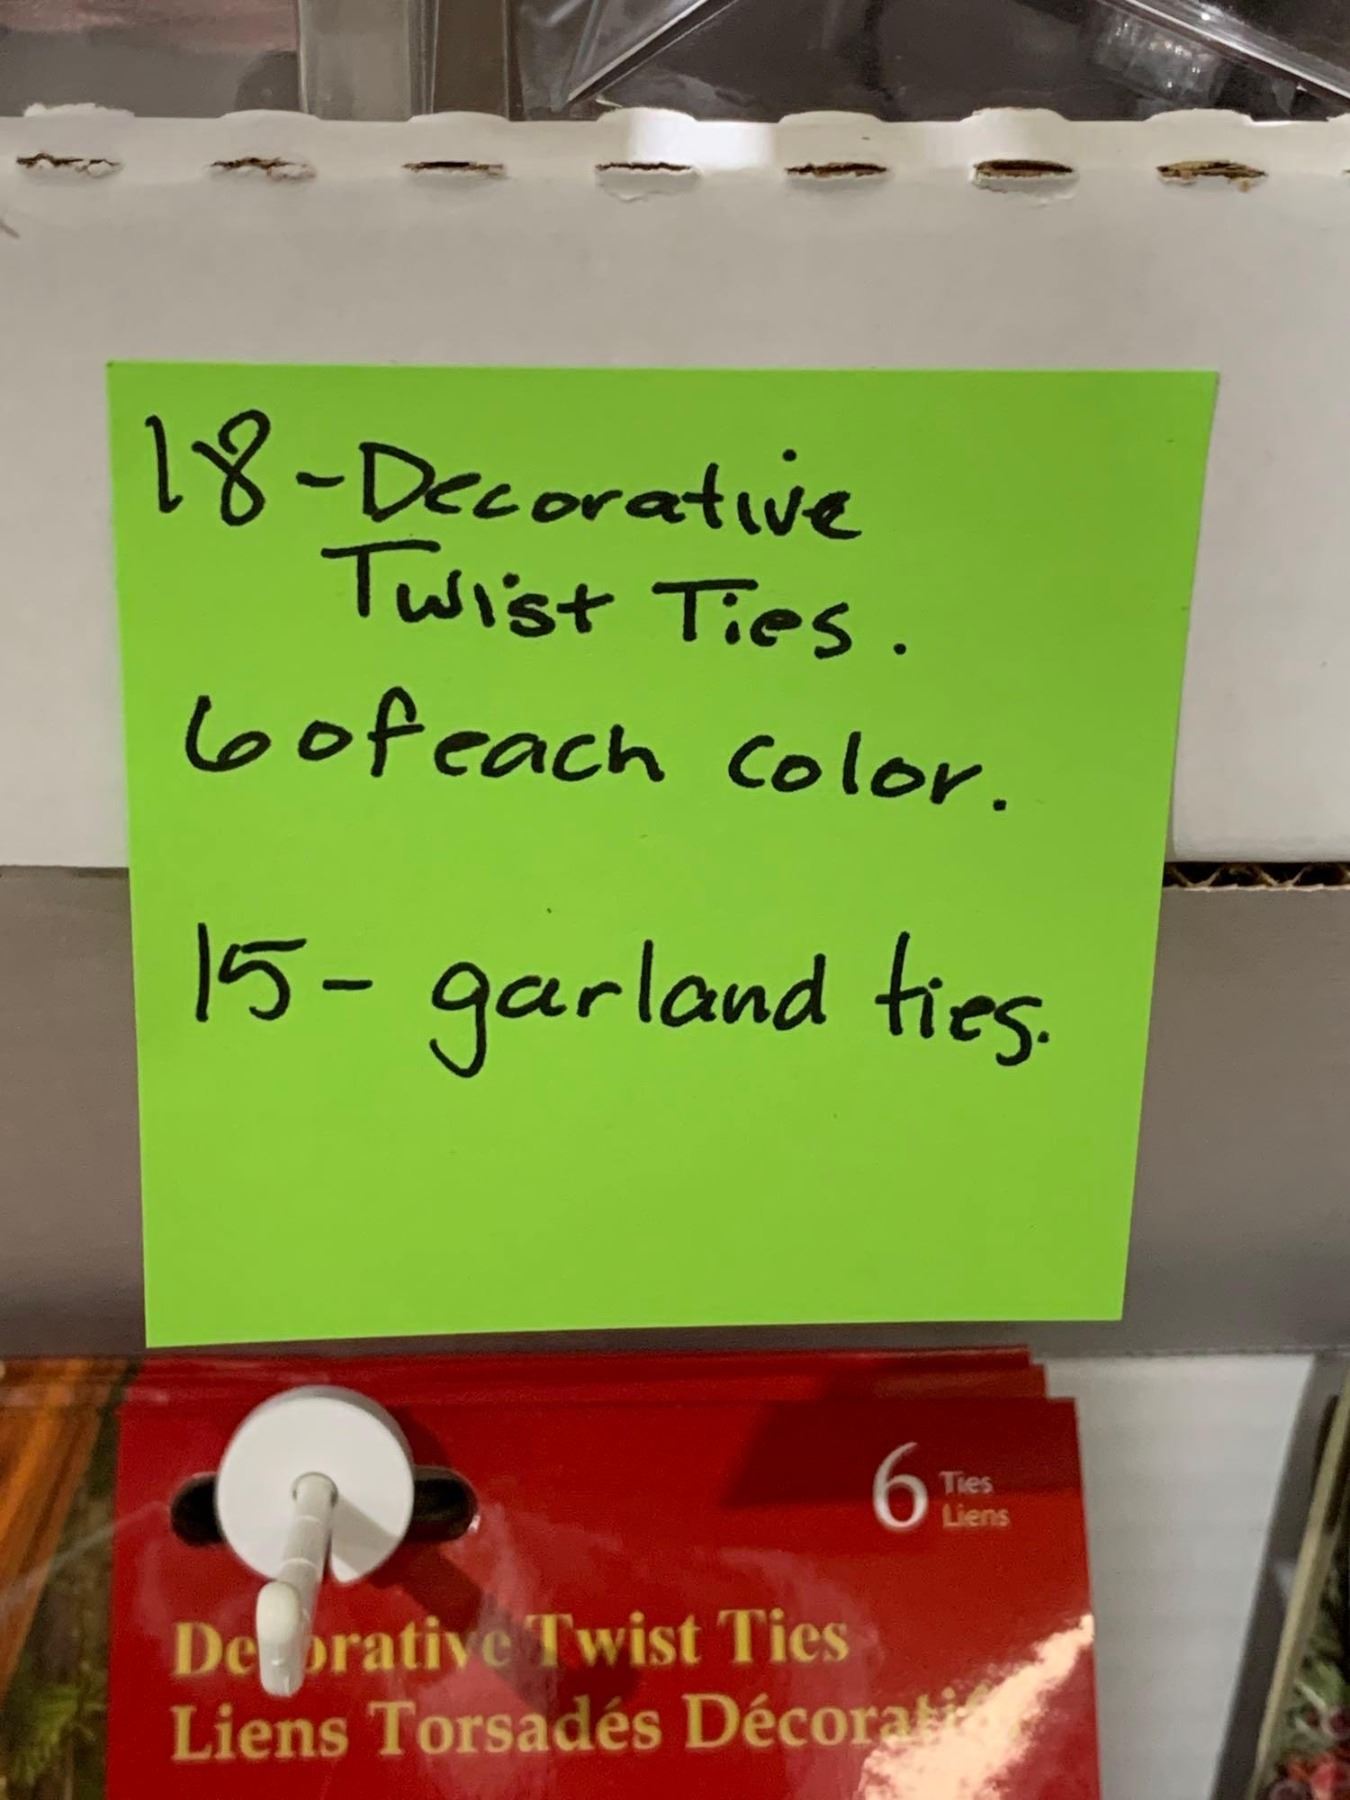 18-Decorative
Twist Ties.
6 of each color.
15- garland ties.
6 Ties
Liens
Decorative Twist Ties
Liens Torsadés Décoratifs